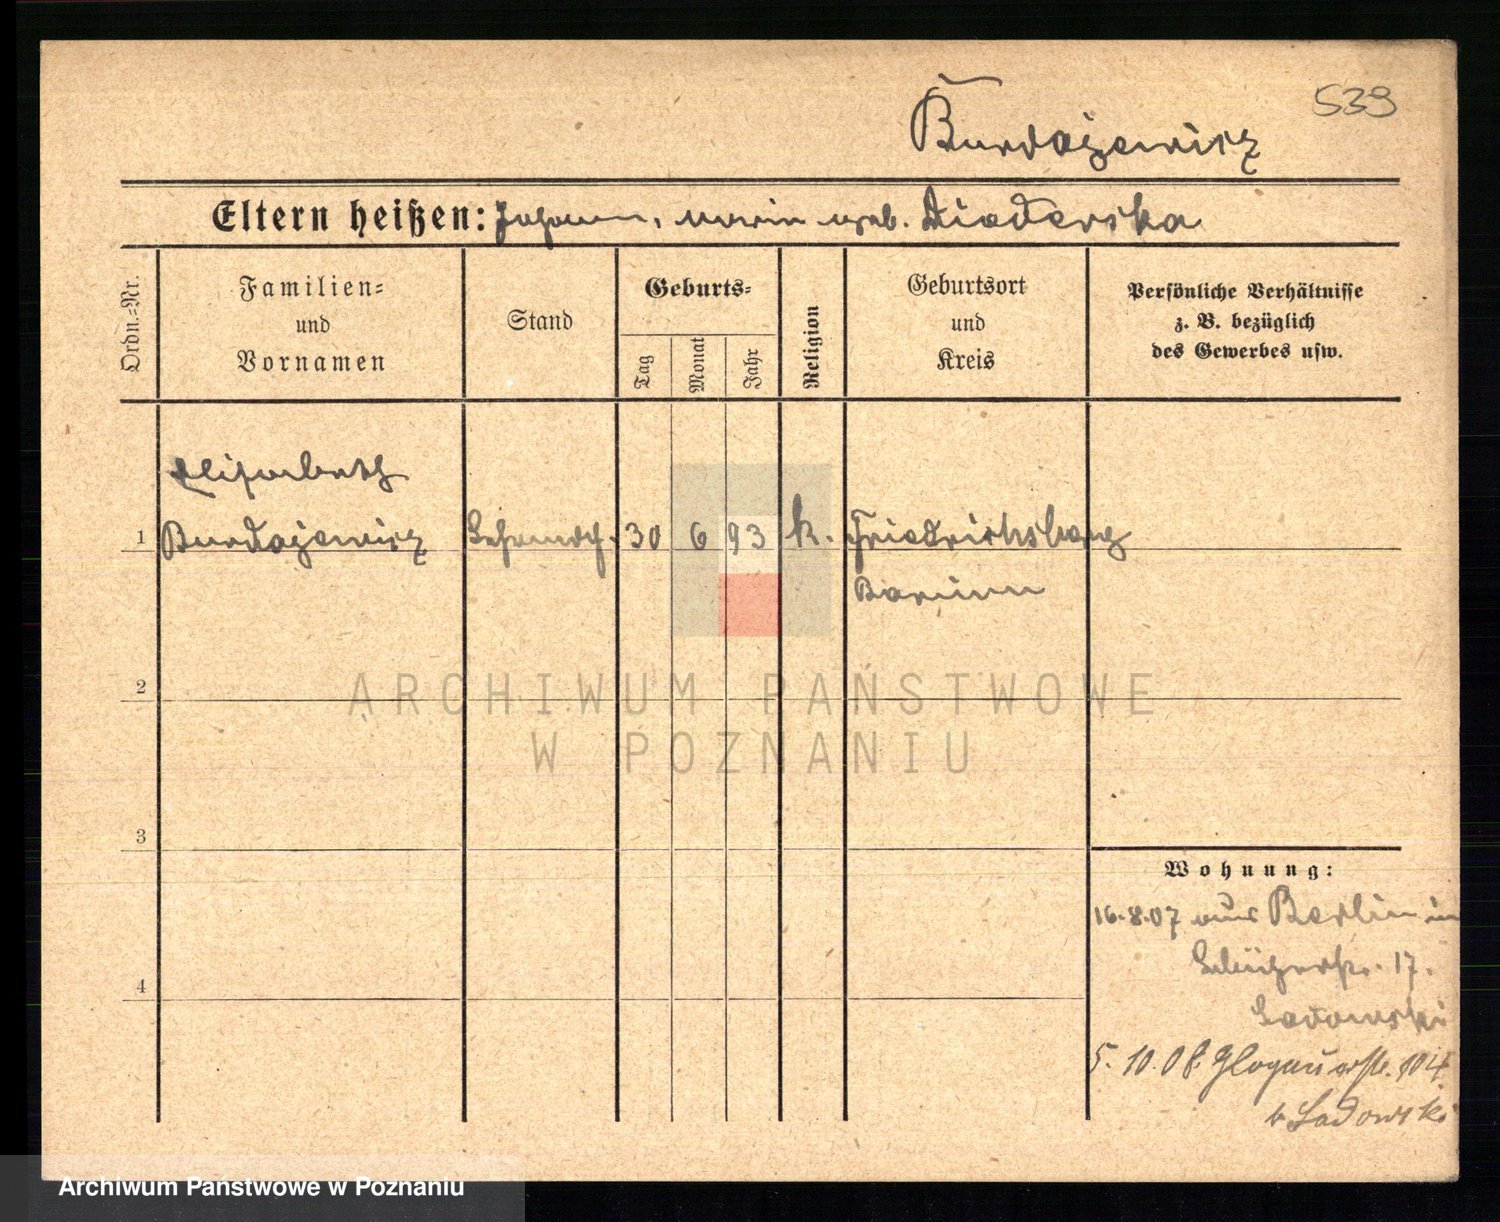 539
Burdajewicz
Eltern heißen: Johann, Maria geb. Diederska
Ordn.-Nr.
Familien-
und
Vornamen
Stand
Geburts-
Tag
Monat
Jahr
Religion
Geburtsort
und
Kreis
Persönliche Verhältnisse
z. B. bezüglich
des Gewerbes usw.
Elisabeth
1 Burdajewicz 30 6 93 k. Friedrichsberg
Barnim
2
3
4
Wohnung:
16.8.07 aus Berlin in
17.
Sadowski
5.10.08 Glogauerstr. 104
b Sadowski
ARCHIWUM PAŃSTWOWE
W POZNANIU
Archiwum Państwowe w Poznaniu